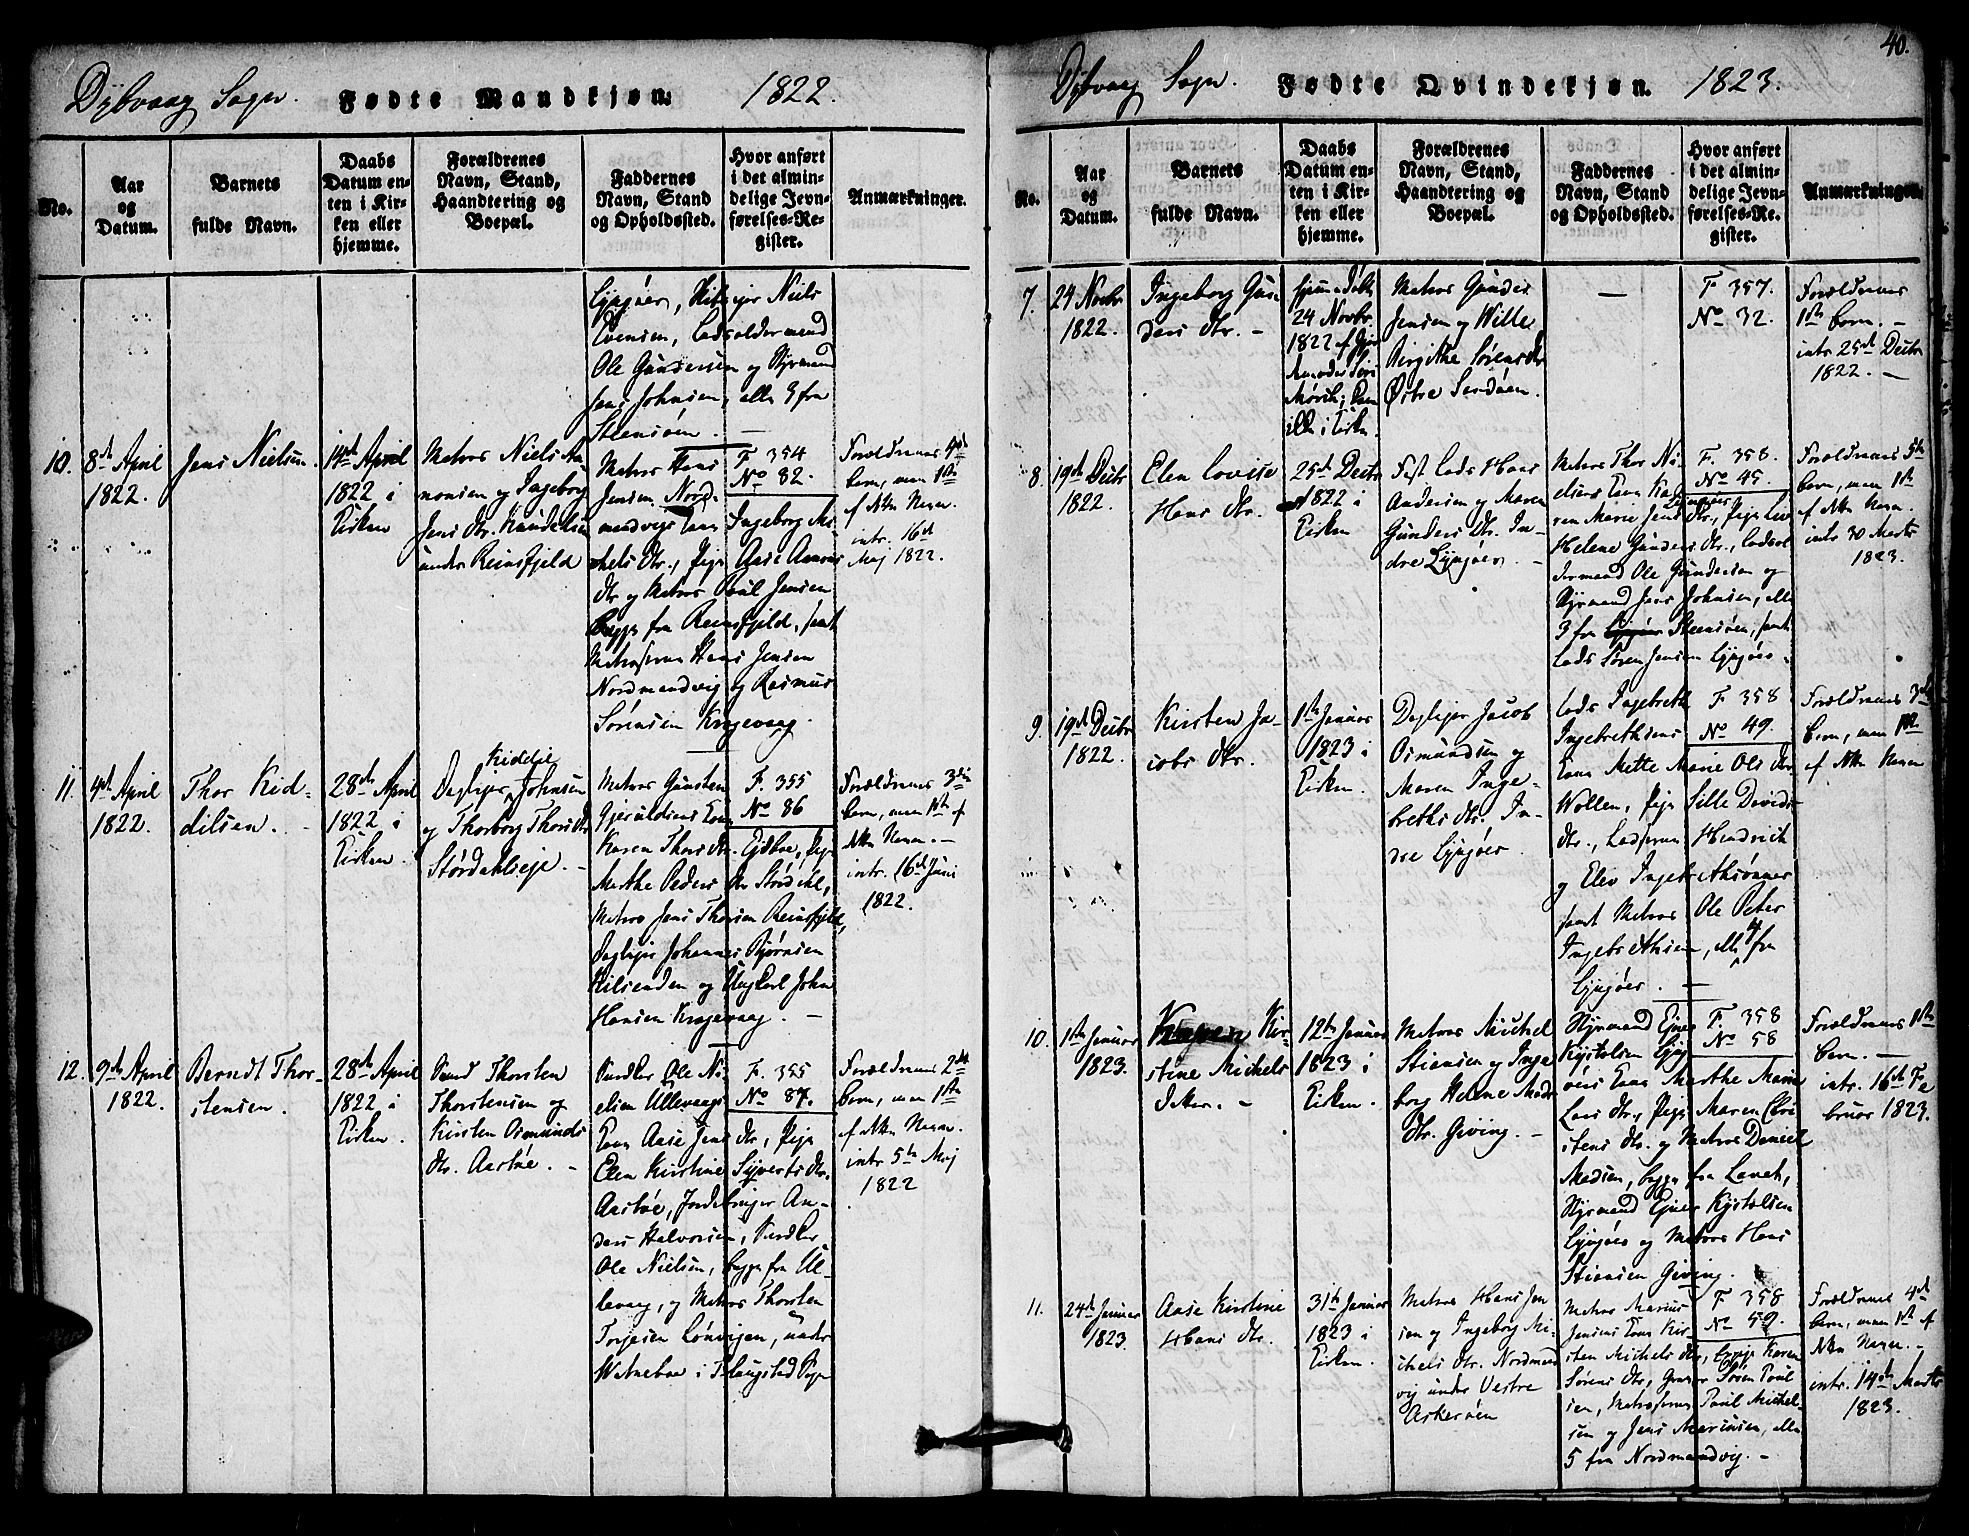 Dybvaag Sogn. Fødte Mandkjøn. 1822.
No.
Aar
og
Datum.
Barnets
fulde Navn.
Daabs
Datum en-
ten i Kir-
ken eller
hjemme.
Forældrenes
Navn, Stand,
Haandtering og
Boepæl.
Faddernes
Navn, Stand
og Opholdssted.
Hvor anført
i det almin-
delige Jevn-
førelses-Re-
gister.
Anmærkninger.
Lyngøer, Niels
Evensen, Lodsoldermand
Ole Gundersen og Styrmand
Jens Johnsen, alle 3 fra
Steensøen.
10.
8de April
1822.
Jens Nielsen.
14de April
1822 i
Kirken
Matros Niels Aa-
nonsen og Ingeborg
Jens dtr.
under Reinsfjeld
Matros Hans
Jensen Nord-
mandvigs Kone
Ingeborg Mi-
chels dtr., Pige Aase Aanons
dtr og Matros Poul Jensen
begge fra Reinsfjeld, samt
Matroserne Hans Jensen
Nordmandvig og Rasmus
Sørensen Krogevaag.
F. 354
No 82.
Forældrenes 4de
barn, men 1ste
af dette Navn.
intr. 16de
Maj 1822.
11.
4de April
1822.
Thor Kid-
dilsen.
28de April
1822 i
Kirken.
Kiddil
Dagleier Johnsen
og Thorborg Thors dtr
Størdahlseje.
Matros Gunsten
Gjeruldsens Kone
Karen Thors dtr. Ejdboe, Pige
Marthe Peders dtr Stördahl,
Matros Jens Thorsen Reinsfjeld,
Dagleier Johannes Bjørnsen
og Ungkarl John
Hansen Krogevaag.
F. 355
No 86
Forældrenes 3die
barn, men 1ste af
dette Navn.
intr. 16de Juni
1822.
12.
9de April
1822.
Berndt Thor-
stensen.
28de April
1822 i
Kirken.
Thorsten
Thorstensen og
Kirsten Osmunds
dtr. Aastøe.
Ole Ni-
elsen Ullevaags
Kone Aase Jens dtr, Pige
Elen Kirstine Syverts dtr.
Aastøe, Jordebruger An-
ders Halvorsen,
Ole Nielsen, begge fra Ul-
levaag, og Matros Thorsten
Torjesen Lønvigen, under
Watneboe i Flangstad Sogn
F. 355
No 87.
Forældrenes 2det
barn, men 1ste
af dette Navn.
intr. 5te Maj
1822
40.
Dybvaag Sogn. Fødte Qvindekjøn. 1823.
No.
Aar
og
Datum.
Barnets
fulde Navn.
Daabs
Datum en-
ten i Kir-
ken eller
hjemme.
Forældrenes
Navn, Stand,
Haandtering og
Boepæl.
Faddernes
Navn, Stand
og Opholdssted.
Hvor anført
i det almin-
delige Jevn-
førelses-Re-
gister.
Anmærkninger.
7.
24 Novbr
1822.
Ingeborg Gun-
ders dtr.
hjemmedøbt
24 Novbr.
1822 af
Matros Gunder
Jensen og Wille
Birgithe Sørens dtr
Østre Sandøen.
F 357.
No 32.
Forældrenes
1ste barn.
intr 25de Decbr
1822.
8.
19de Decbr
1822.
Elen Lovise
Hans dtr.
25de Decbr
1822 i
Kirken
Fast Lods Hans
Andersen og Maren
Gunders dtr. In-
dre Lyngøer.
Matros Thor Ni-
elsens Kone Ka-
ren Marie Jens dtr., Pige
Helene Gunders dtr., Lodsol
dermand Ole Gundersen og
Styrmand Jens Johnsen, alle
3 fra Steensøen, samt
Lods Søren Jensen Lyngøer.
F. 358.
No 45.
Forældrenes 5te
barn, men 1ste
af dette Navn.
intr 30 Marts
1823.
9.
19de Decbr
1822.
Kirsten Ja-
cobs dtr.
1ste Januar
1823 i
Kirken.
Dagleier Jacob
Osmundsen og
Maren Inge-
breths dtr. In-
dre Lyngøer.
Lods Ingebreth
Ingebrethsens
Kone Mette Marie Ols dtr
Wollen, Pige Sille Davids-
dtr., Lodserne Hendrich
og Elev Ingebrethsønner
samt Matros Ole Peter
Ingebrethsen, alle 4 fra
Lyngøer.
F 358
No 49.
Forældrenes 3die
barn, men 1ste
af dette Navn
10.
1ste Januar
1823.
Kir-
stine Michels
dater.
12te Januar
1823 i
Kirken.
Matros Michel
Stiansen og Inge
borg Helene Mads
dtr. Giving.
Styrmand Ejner
Kystolsen Lyng-
øers Kone Marthe Marie
Lars dtr., Pige Maren Chri
stens dtr. og Matros Daniel
Madsen, begge fra Lanet,
Styrmand Ejner Kystolsen
Lyngøer og Matros Hans
Stiansen Giving.
F. 358
No 58
Forældrenes 1ste
barn.
intr. 16de Fe
bruar 1823.
11.
24de Januar
1823.
Aase Kirstine
Hans dtr.
31te Januar
1823 i
Kirken.
Matros Hans Jen
sen og Ingeborg Mi-
chels dtr. Nordmand
vig under Vestre
Askerøen
Matros Marius
Jensens Kone Kir-
sten Michels dtr, Karen
Sørens dtr, Søren Poul
sen, Matroserne Poul Michel-
sen og Jens Mariusen, alle
5 fra Nordmandvig.
F 358
No 59.
Forældrenes 4de
barn, men 1ste af
dette Navn.
intr. 14de Marts
1823.